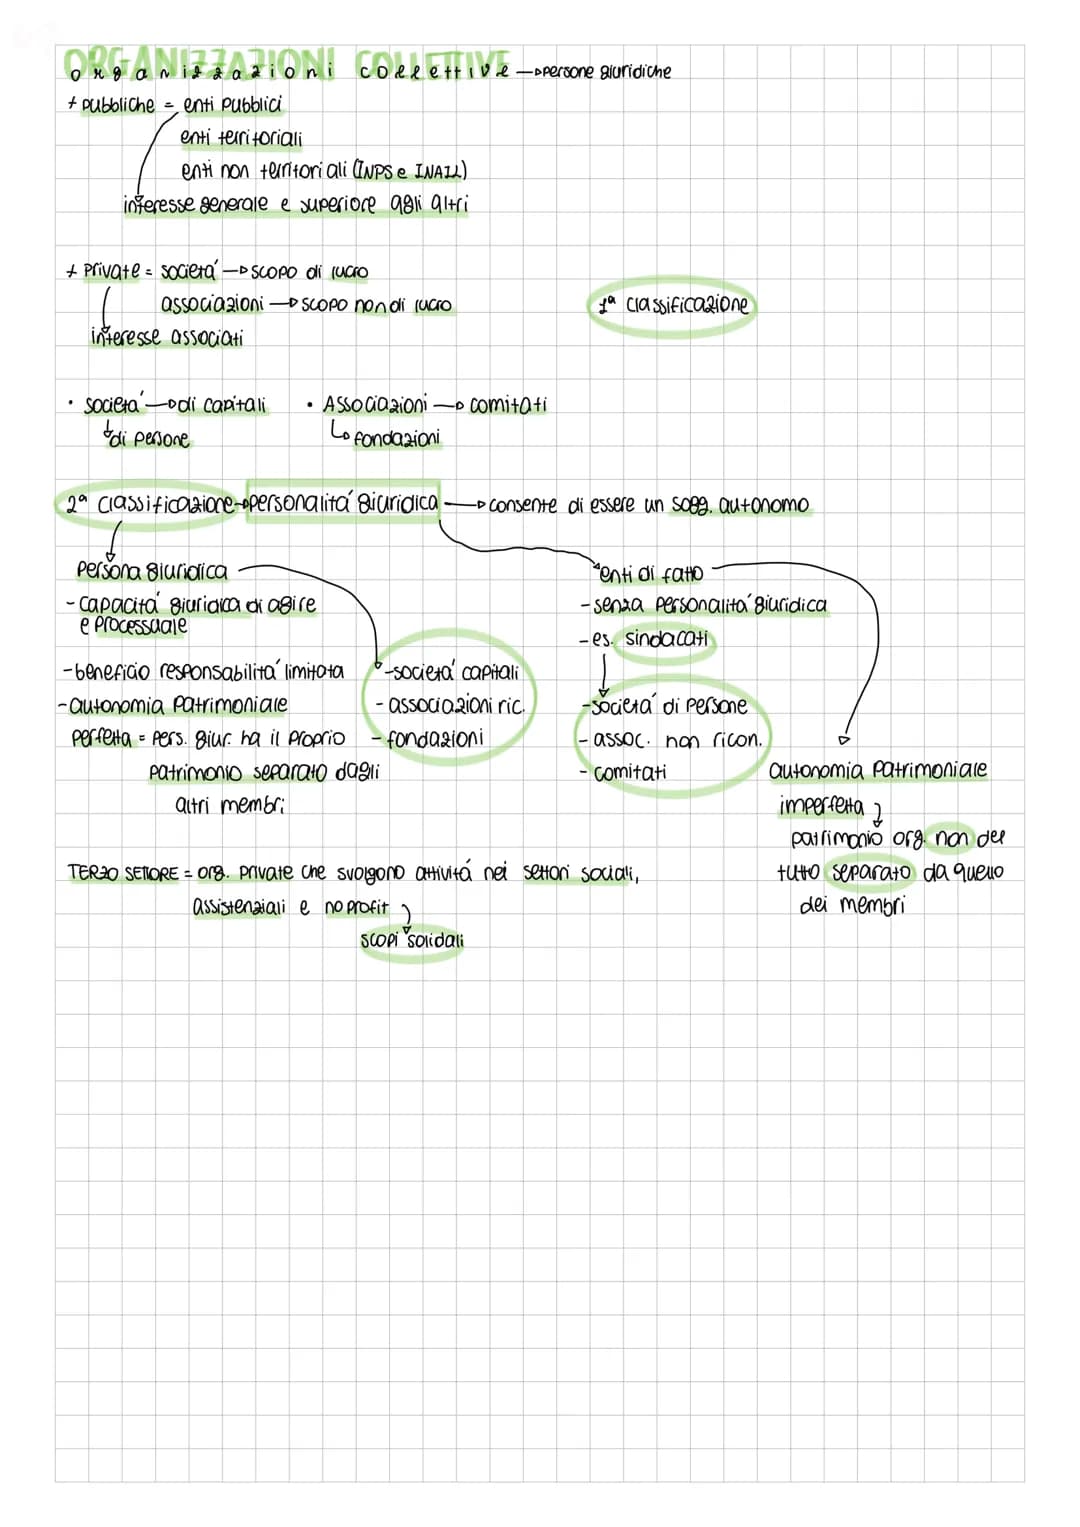 ORGANIZZAZIONI COLLETTIVE
organizzazioni collettive → persone giuridiche
+ pubbliche = enti pubblici
enti territoriali
enti non territoriali (INPS e INAIL)
interesse generale e superiore agli altri
+ private = società → scopo di lucro
associazioni → scopo non di lucro
1ª classificazione
interesse associati
• società → di capitali
↓ di persone
• Associazioni → comitati
↳ fondazioni
2ª classificazione → personalità giuridica → consente di essere un sogg. autonomo
persona giuridica
- capacità giuridica di agire
e processuale
- beneficio responsabilità limitata
- autonomia patrimoniale
perfetta = pers. giur. ha il proprio
patrimonio separato dagli
altri membri
- società capitali
- associazioni ric.
- fondazioni
enti di fatto
- senza personalità giuridica
- es. sindacati
- società di persone
- assoc. non ricon.
- comitati
autonomia patrimoniale
imperfetta
patrimonio org. non del
tutto separato da quello
dei membri
TERZO SETTORE = org. private che svolgono attività nei settori sociali,
assistenziali e no profit
scopi solidali